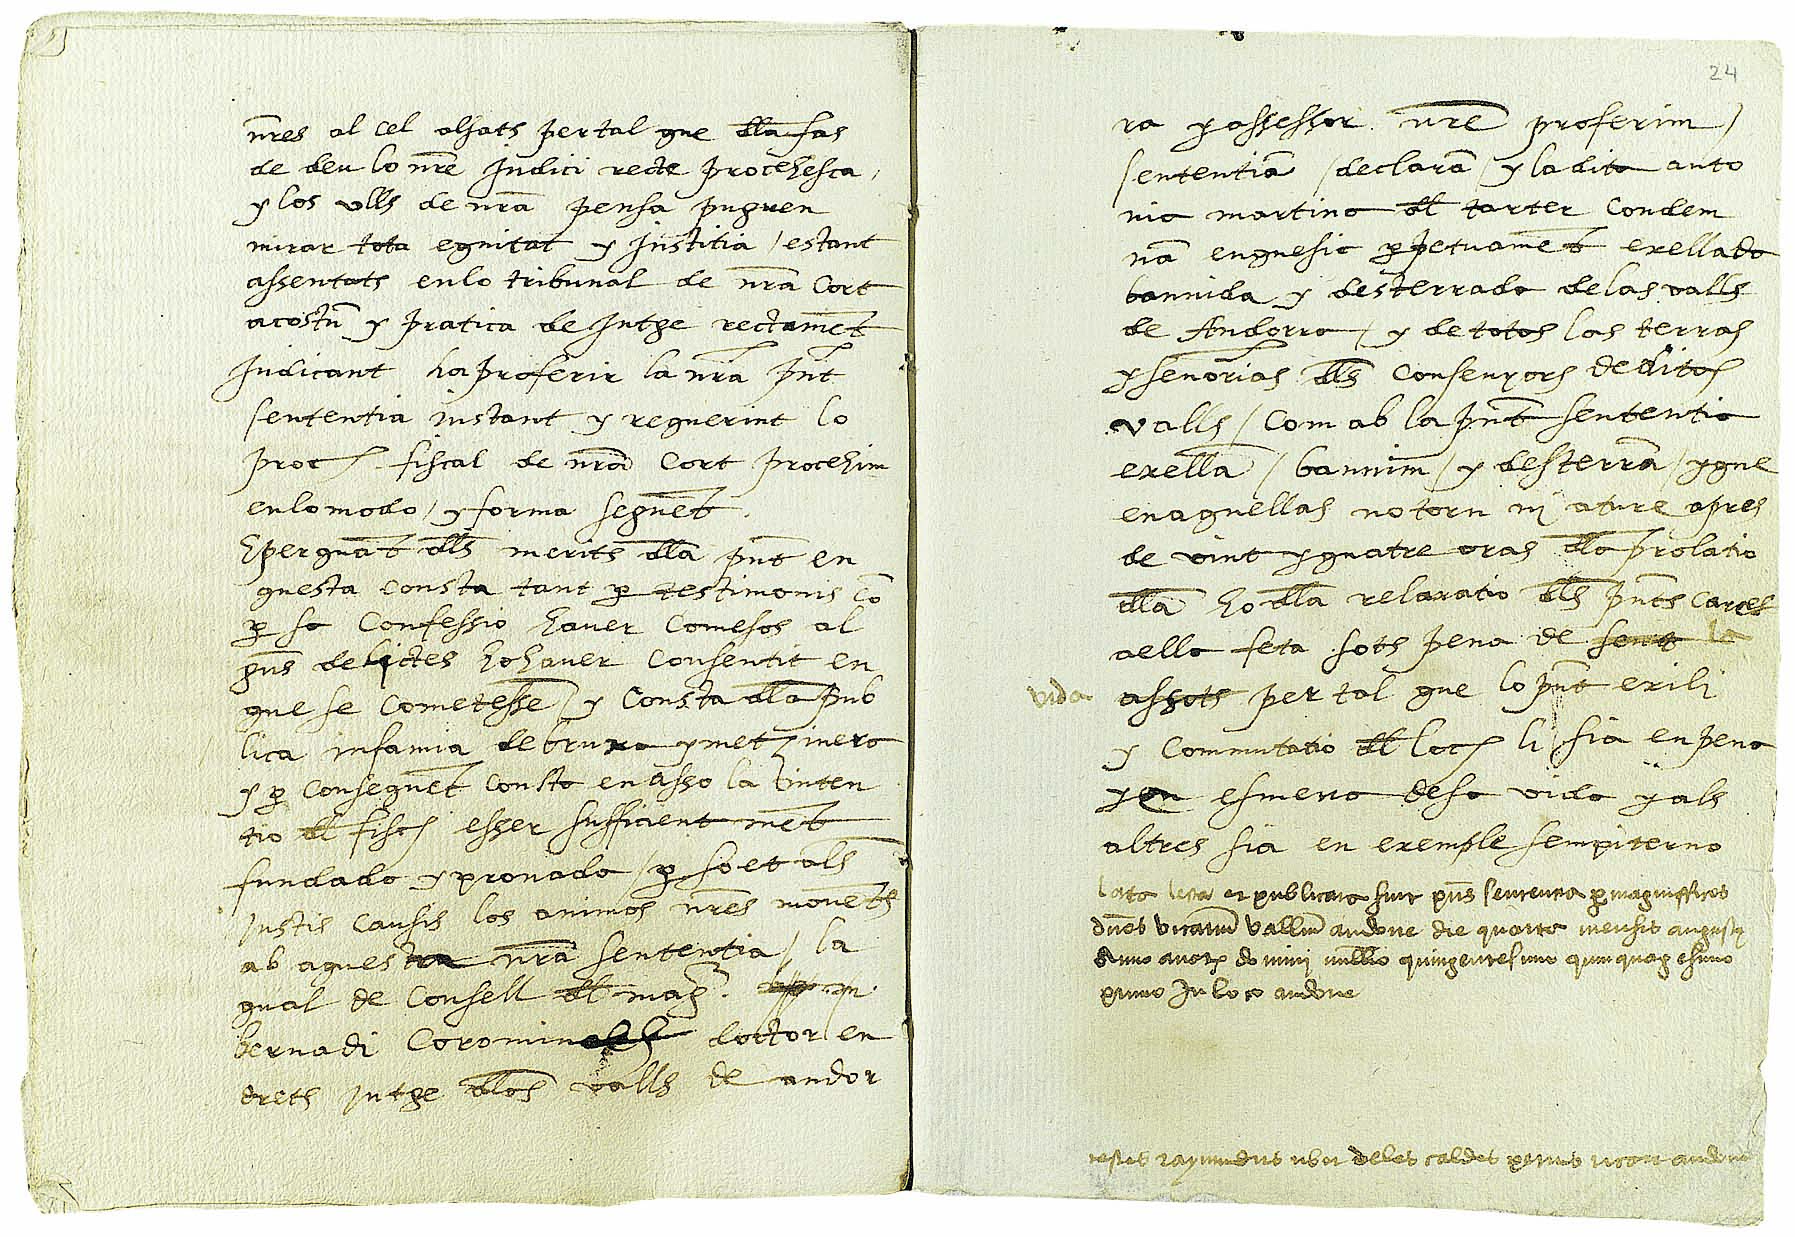 nr̃es al cel alsats per tal que dlla fas
de deu lo nr̃e Judici recte procehesca,
y los ulls de nr̃a pensa puguen
mirar tota equitat y Justitia / estant
assentats en lo tribunal de nr̃a Cort
acostũ y pratica de Jutge rectamẽt
Judicant ha proferir la nr̃a pñt
sententia instant y requerint lo
proc fiscal de nr̃a Cort procehim
en lo modo / y forma seguẽt.
E per quãt dlls merits dlla pñt en
questa consta tant p testimonis cõ
p sa Confessio haver Comesos al
guns delictes ho haver Consentit en
que se Cometesse / y Consta dlla pub
lica infamia de bruxa y metzinera
y p Conseguẽt Consta en asso la inten
tio dl fisc esser sufficient mẽt
fundada y provada / p so et als
Justis Causis los animos nr̃es movẽts
ab aquesta nr̃a sententia / la
qual de Consell dl mag. m.
bernadi Coromin doctor en
drets Jutge dlas valls de andor
24
ra y assessor nr̃e proferim /
sententiã / declarã / y la dita anto
nia martina dl tarter Condem
nã en que sie ppetuamẽt exellada
bannida y desterrada de las valls
de Andorra / y de totas las terras
y senorias dlls Consenyors de ditas
valls / Com ab la pñt sententia
exellã / bannim / y desterrã / y que
en aquellas no torn ni ature apres
de vint y quatre oras dla prolatio
dlla ho dlla relaxatio dlls pñts Carces
a ella feta sots pena de sent la
vida assots per tal que lo pñt exili
y Commutatio dl loch li sia en pena
y en esmena de sa vida y als
altres sia en exemple sempiterno
lata lecta et publicata fuit pñs sententia p magnifficos
dños vicariũ valliũ andorre die quarta mensis augusti
Anno a nat dominj millio quingentesimo quinquagesimo
primo In loco andorre
testes raymundus de les caldes andorre